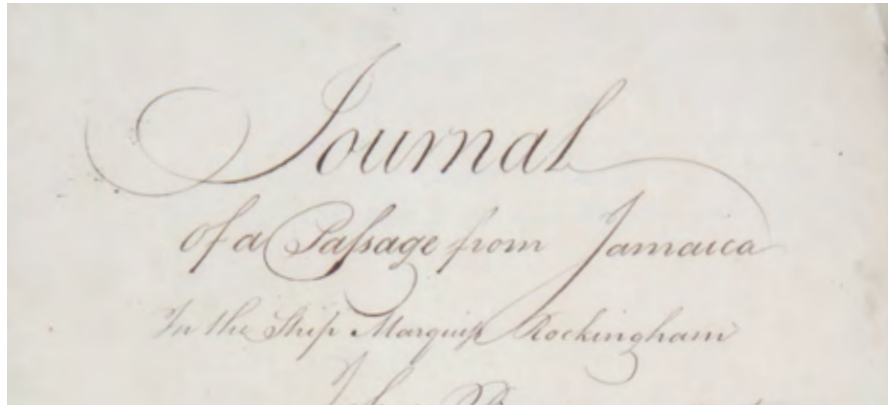 Journal
of a Paſsage from Jamaica
In the Ship Marquiſs Rockingham